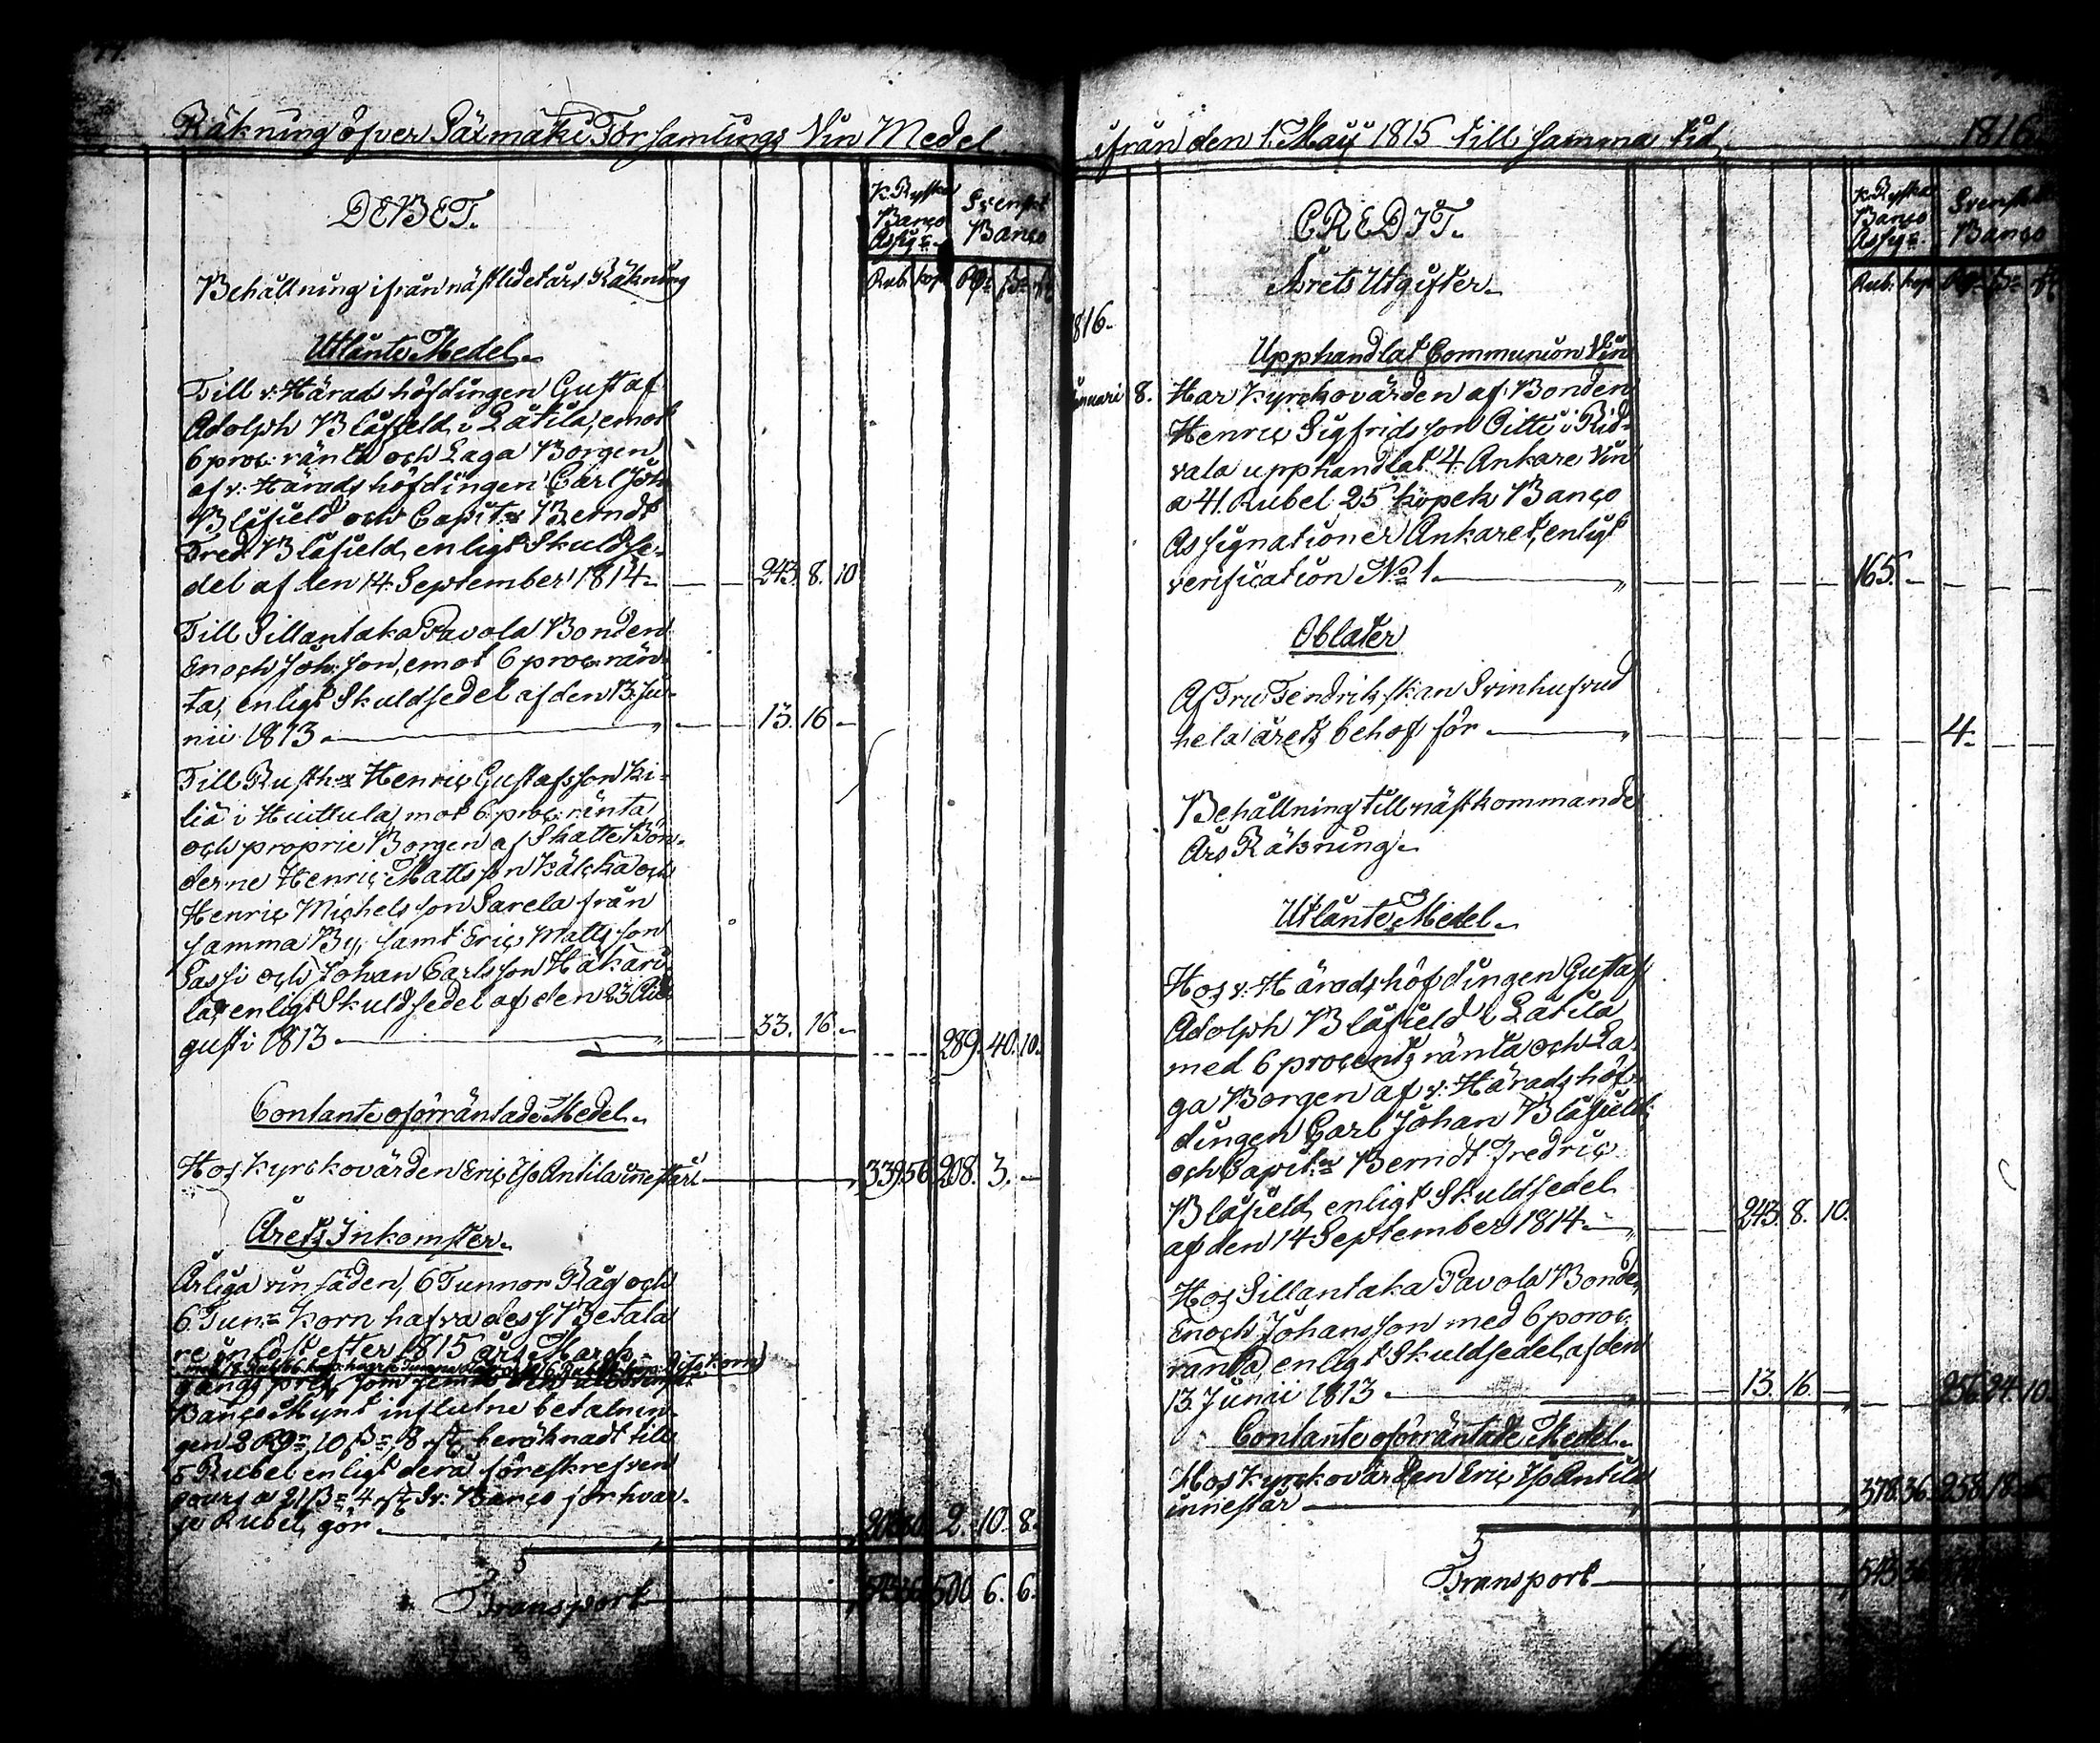 Räkning öfver Säxmäki Församlings Vin Medel
DEBET.
K. Ryska Banco Assig:r
Svenskt Banco
Rub. kop. Rd:r s:r
Behållning ifrån nästledet års Räkning
Utlånte Medel.
Till v: Häradshöfdingen Gustaf
Adolph Blåfield i Låtila, emot
6 proc: ränta och Laga Borgen
af v: Häradshöfdingen Carl Joh
Blåfield och Capit:n Berndt
Fred: Blåfield, enligt Skuldse-
del af den 14. September 1814. 243. 8. 10
Till Sillantaka Pavola Bonden
Enoch Joh: son, emot 6 proc: rän-
ta, enligt Skuldsedel af den 13. Ju-
nii 1813 13. 16 -
Till Rusth:r Henric Gustafsson Ki-
liä i Huittula, mot 6 proc: ränta
och proprie Borgen af Skatte Bön-
derne Henric Mattsson Käckä och
Henric Michelsson Sarela från
samma By, samt Eric Mattsson
Sassi och Johan Carlsson Hakari-
la, enligt Skuldsedel af den 23 Au-
gusti 1813 33. 16. - 289. 40. 10.
Contante oförräntade Medel.
Hos Kyrckovärden Eric J:o Antila innestår 339. 56 208. 3. -
Årets Inkomster.
Årliga vin säden, 6 Tunnor Råg och
6 Tun:r Korn hafva dess Betala
re inlöst efter 1815 års Mark-
gångs pris, som
Banco Mynt influtne betalnin-
gen 2 Rd:r 10 s:r 8 rst beräknadt till
5 Rubel enligt derå föreskrefven
cours a 21 s:r 4 rst Sv: Banco för hvar-
je Rubel, gör 2. 10. 8.
Transport 500. 6. 6.
ifrån den 1. Maij 1815 till samma tid 1816
CREDIT.
K. Ryska Banco Assig:r
Svenskt Banco
Rub. kop.
Årets Utgifter.
1816.
Upphandlat Communion Vin
Januari 8. Har Kyrckovärden af Bonden
Henric Sigfridsson Oitti i Rid-
vala upphandlat 4. Ankare Vin
a 41. Rubel 25 kopek Banco
Assignationer Ankaret, enligt
verification N:o 1. 165. -
Oblater
Af Fru Fendrikskan Svinhufvud
hela årets behof för 4. -
Behållning till nästkommande
Års Räkning.
Utlånte Medel.
Hos v: Häradshöfdingen Gustaf
Adolph Blåfield i Låtila
med 6 procents ränta och La-
ga Borgen af v: Häradshöf-
dingen Carl Johan Blåfield
och Capit:n Berndt Fredric
Blåfield, enligt Skuldsedel
af den 14 September 1814. 243. 8. 10.
Hos Sillantaka Pavola Bonde,
Enoch Johansson med 6 proc:
ränta, enligt Skuldsedel, af den
13. Junii 1813 13. 16. - 256. 24. 10.
Contante oförräntade Medel.
Hos Kyrckovärden Eric J:o Antila
innestår 378. 36. 258. 18.
Transport 543. 36